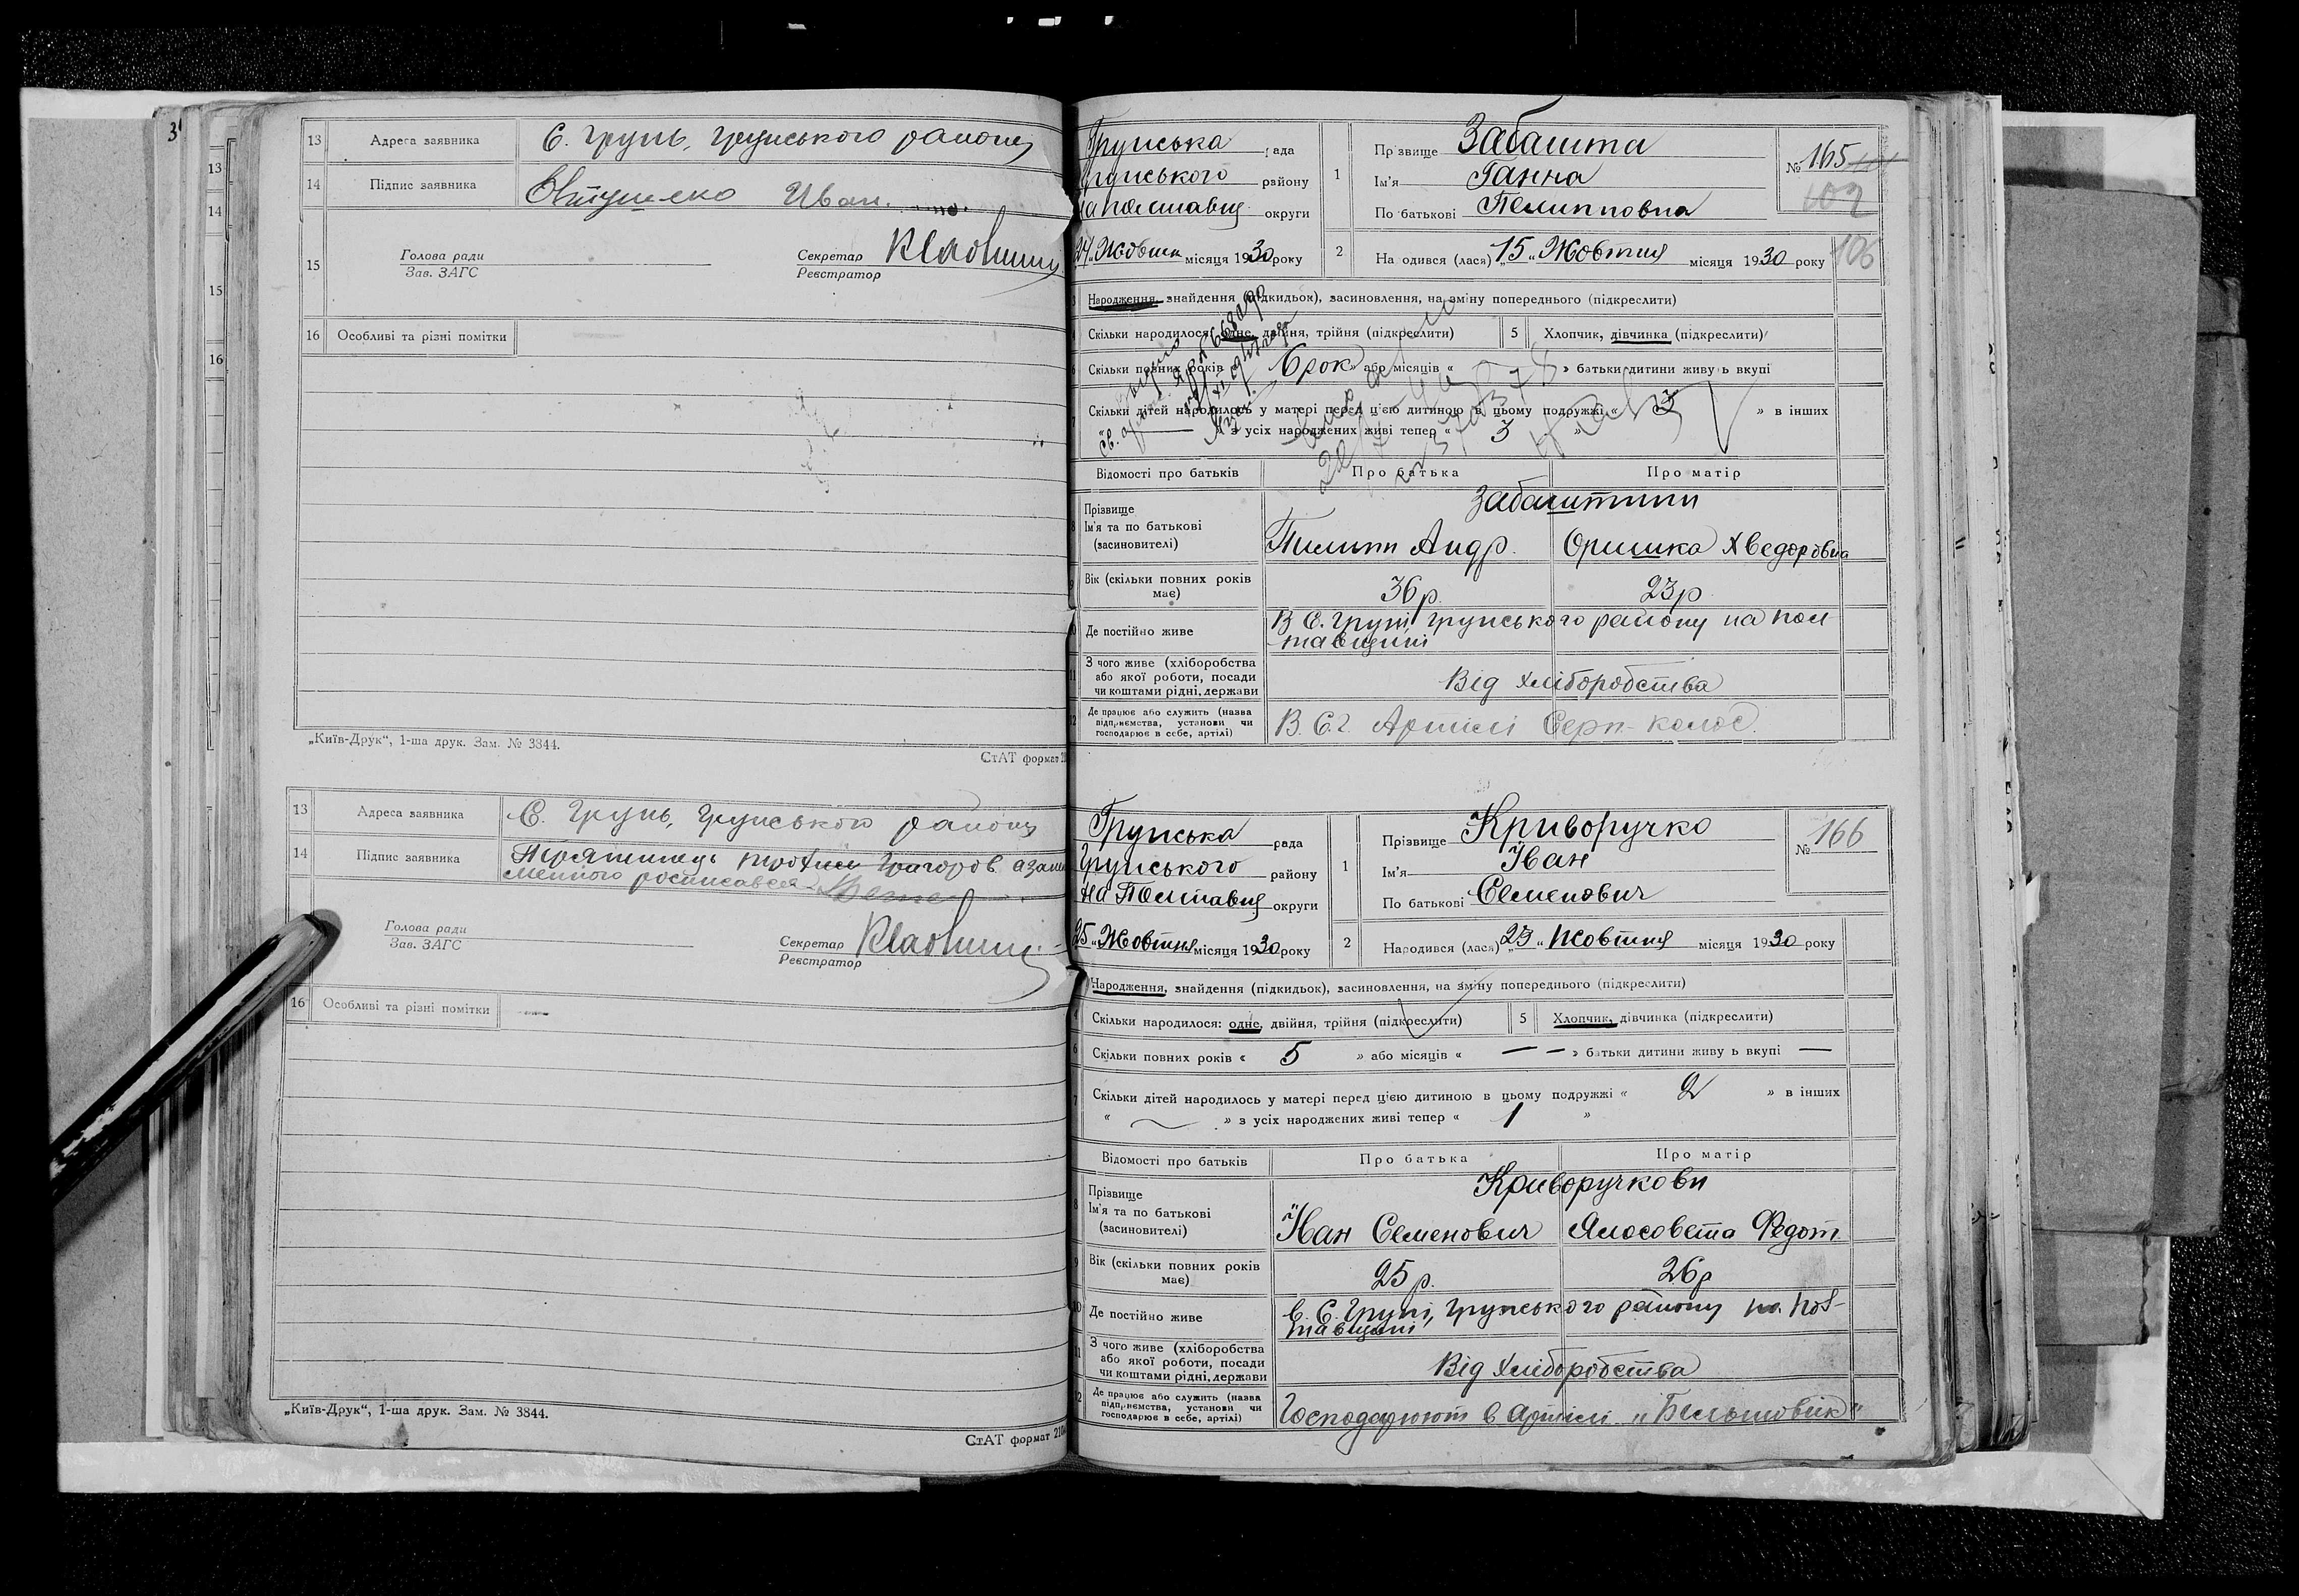 3
13 Адреса заявника С. Грунь, Грунського району
14 Підпис заявника Євтушенко Иван.
15 Голова ради
Зав. ЗАГС
Секретар
Реєстратор
16 Особливі та різні помітки
„Київ-Друк“, 1-ша друк. Зам. № 3844.
СтАТ формат
13 Адреса заявника С. Грунь, Грунського району
14 Підпис заявника
розписався
Голова ради
Зав. ЗАГС
Секретар
Реєстратор
16 Особливі та різні помітки —
„Київ-Друк“, 1-ша друк. Зам. № 3844.
СтАТ формат 210
13
14
15
16
Грунська рада
Грунського району
на Полтавщ округи
24 „ Жовтня місяця 1930 року
1 Прізвище Забашта
Ім'я Ганна
По батькові Пелипповна
№ 165
102
106
2 На одився (лася) „ 15 „ Жовтня місяця 1930 року
Народження, знайдення (підкидьок), засиновлення, на зміну попереднього (підкреслити)
Скільки народилося: одне, двійня, трійня (підкреслити) 5 Хлопчик, дівчинка (підкреслити)
6 Скільки повних років « 6 рок » або місяців « » батьки дитини живу ь вкупі
7 Скільки дітей народилось у матері перед цією дитиною в цьому подружжі « 3 » в інших
« — » з усіх народжених живі тепер « 3 »
Відомості про батьків Про батька Про матір
8 Прізвище
Ім'я та по батькові
(засиновителі)
Забаштини
Пилипп Андр. Оришка Хведоровна
9 Вік (скільки повних років має) 36 р. 23 р
10 Де постійно живе В С. Груні Грунського району на Пол-
тавщині
11 З чого живе (хліборобства
або якої роботи, посади
чи коштами рідні, держави
Від хліборобства
12 Де працює або служить (назва
підприємства, установи чи
господарює в себе, артілі)
В С.г. Артілі Серп-колос.
Грунська рада
Грунського району
на Полтавщ округи
25 „ Жовтня місяця 1930 року
1 Прізвище Криворучко
Ім'я Іван
По батькові Семенович
№ 166
2 Народився (лася) „ 23 „ Жовтня місяця 1930 року
Народження, знайдення (підкидьок), засиновлення, на зміну попереднього (підкреслити)
4 Скільки народилося: одне, двійня, трійня (підкреслити) 5 Хлопчик, дівчинка (підкреслити)
6 Скільки повних років « 5 » або місяців « — — » батьки дитини живу ь вкупі —
7 Скільки дітей народилось у матері перед цією дитиною в цьому подружжі « 2 » в інших
« — » з усіх народжених живі тепер « 1 »
Відомості про батьків Про батька Про матір
8 Прізвище
Ім'я та по батькові
(засиновителі)
Криворучкови
Іван Семенович Ялосовета Федот
9 Вік (скільки повних років має) 25 р. 26 р
10 Де постійно живе в С. Груні, Грунського району на Пол-
тавщині
11 З чого живе (хліборобства
або якої роботи, посади
чи коштами рідні, держави
Від хліборобства
12 Де працює або служить (назва
підприємства, установи чи
господарює в себе, артілі)
Господарюют в артілі „Більшовик“